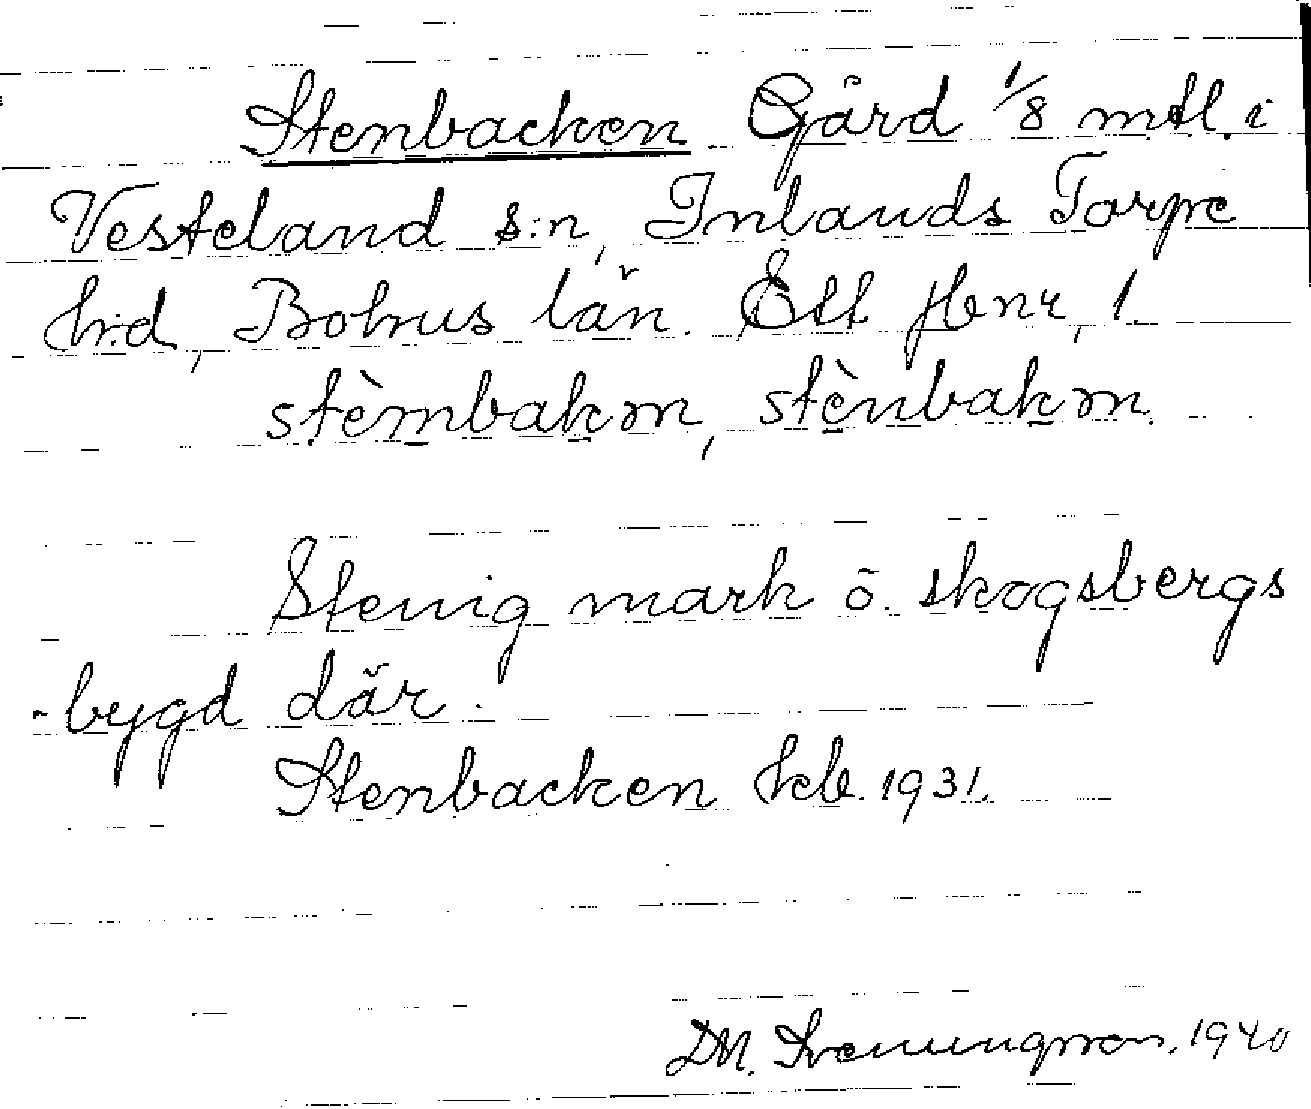 Stenbacken Gård 1/8 mtl. i
Vesteland s:n, Inlands Torpe
hrd, Bohus län. Ett flenr, 1.
stèmbakm, stènbakm.
Stenig mark o. skogsbergs
-bygd där.
Stenbacken kb. 1931.
DM. Svenungsson, 1940